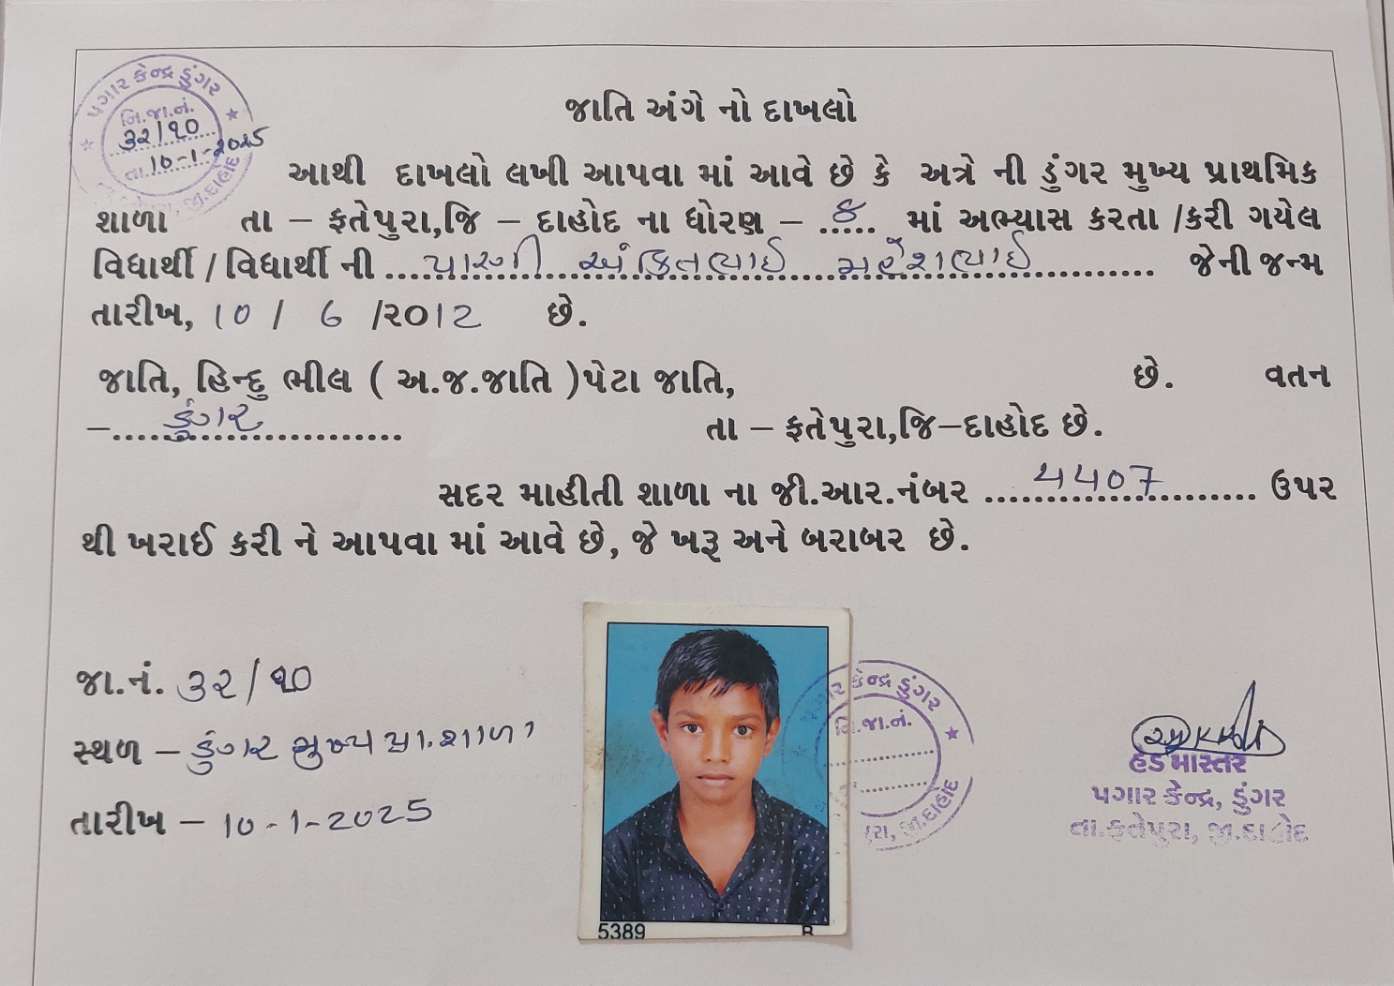 પગાર કેન્દ્ર ડુંગર
નિ.જા.નં.
૩૨/૧૦
તા. 10-1-2025
જી.દાહોદ
જાતિ અંગે નો દાખલો
આથી દાખલો લખી આપવા માં આવે છે કે અત્રે ની ડુંગર મુખ્ય પ્રાથમિક
શાળા તા – ફતેપુરા,જિ – દાહોદ ના ધોરણ – ..૮... માં અભ્યાસ કરતા /કરી ગયેલ
વિધાર્થી / વિધાર્થી ની ... પારગી અંકિતભાઈ મહેશભાઈ ... જેની જન્મ
તારીખ, 10 / 6 /૨૦12 છે.
જાતિ, હિન્દુ ભીલ ( અ.જ.જાતિ )પેટા જાતિ, છે. વતન
–....ડુંગર.... તા – ફતેપુરા,જિ–દાહોદ છે.
સદર માહીતી શાળા ના જી.આર.નંબર ....4407.... ઉપર
થી ખરાઈ કરી ને આપવા માં આવે છે, જે ખરૂ અને બરાબર છે.
જા.નં. ૩૨/૧૦
સ્થળ – ડુંગર મુખ્ય પ્રા.શાળા
તારીખ – 10-1-2025
5389
પગાર કેન્દ્ર ડુંગર
નિ.જા.નં.
જી.દાહોદ
હેડ માસ્તર
પગાર કેન્દ્ર, ડુંગર
તા.ફતેપુરા, જી.દાહોદ